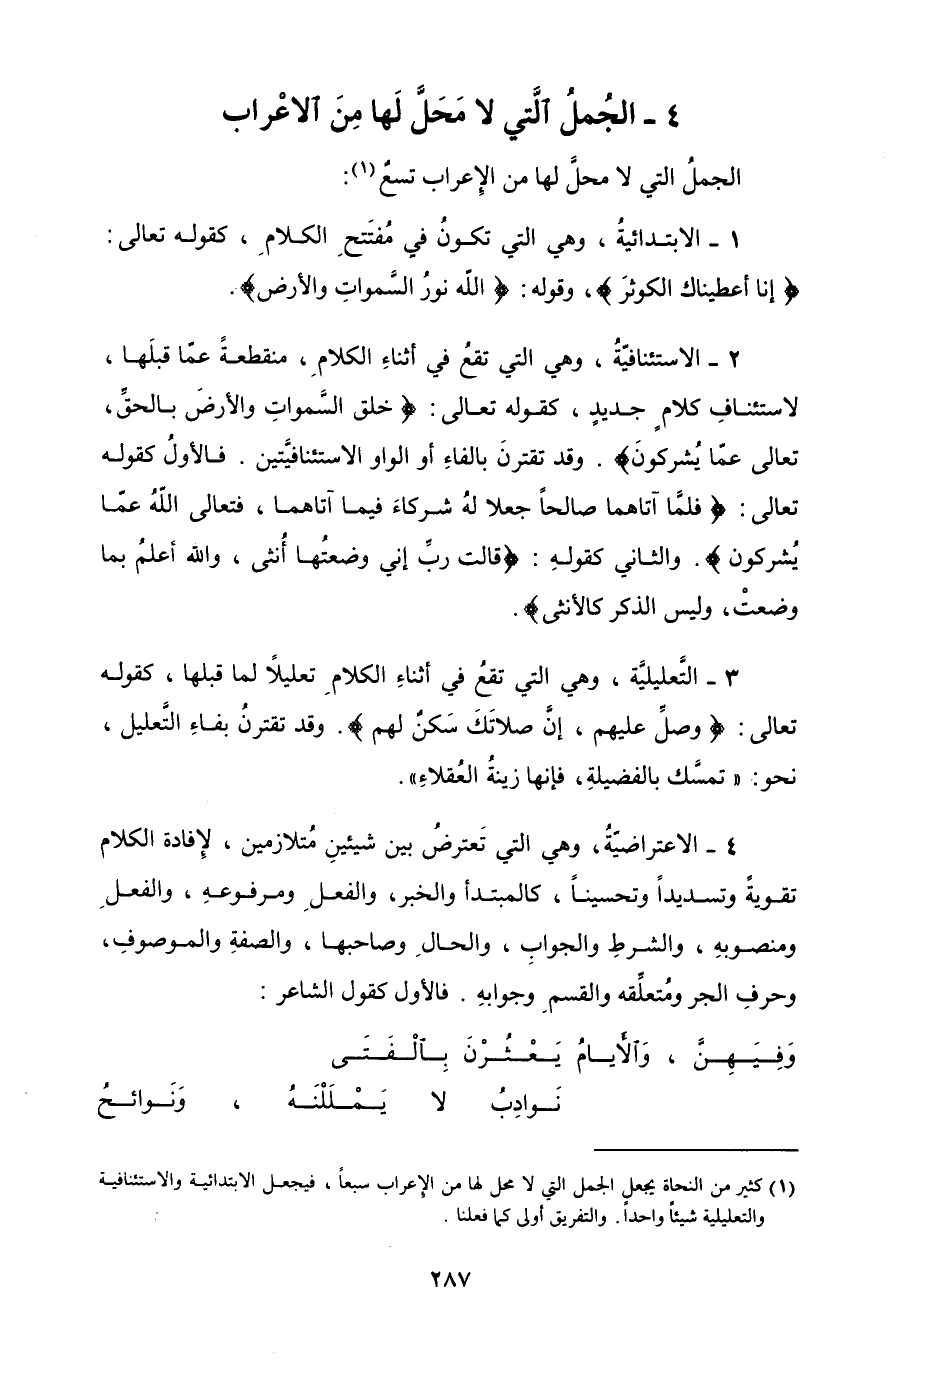 ٤ ـ الجُملُ ٱلَّتي لا مَحَلَّ لَها مِنَ ٱلاعْراب
الجملُ التي لا محلَّ لها من الإعراب تسعٌ (١):
١ ـ الابتدائيةُ ، وهي التي تكونُ في مُفتَتحِ الكلامِ ، كقوله تعالى :
﴿ إنا أعطيناك الكوثرَ ﴾، وقوله : ﴿ اللّه نورُ السَّمواتِ والأرض﴾.
٢ ـ الاستئنافيّةُ ، وهي التي تقعُ في أثناءِ الكلامِ ، منقطعةً عمّا قبلَها ،
لاستئنافِ كلامٍ جديدٍ ، كقوله تعالى : ﴿ خلق السَّمواتِ والأرضَ بالحقِّ،
تعالى عمّا يُشركونَ﴾ . وقد تقترنَ بالفاءِ أو الواو الاستئنافيَّتين . فالأولُ كقوله
تعالى : ﴿ فلمَّا آتاهما صالحاً جعلا لهُ شركاءَ فيما آتاهما ، فتعالى اللّهُ عمّا
يُشركون ﴾. والثاني كقولهِ : ﴿قالت ربِّ إني وضعتُها أُنثى ، والله أعلمُ بما
وضعتْ، وليس الذكر كالأنثى﴾.
٣ ـ التَّعليليَّة ، وهي التي تقعُ في أثناءِ الكلامِ تعليلًا لما قبلها ، كقوله
تعالى : ﴿ وصلِّ عليهم ، إنَّ صلاتَكَ سَكنٌ لهم ﴾. وقد تقترنُ بفاءِ التَّعليل ،
نحو: « تمسَّك بالفضيلةِ، فإنها زينةُ العُقلاءِ».
٤ ـ الاعتراضيّةُ، وهي التي تَعترضُ بين شيئينِ مُتلازمين ، لإفادة الكلام
تقويةً وتسديداً وتحسيناً ، كالمبتدأ والخبر، والفعلِ ومرفوعهِ ، والفعلِ
ومنصوبهِ ، والشرطِ والجوابِ ، والحالِ وصاحبها ، والصفةِ والموصوفِ،
وحرفِ الجر ومُتعلِّقه والقسمِ وجوابهِ . فالأول كقول الشاعر :
وَفِيَهِنَّ ، وَٱلأَيامُ يَعْثُرْنَ بِٱلْفَتَى
نَوادِبُ لا يَمْلَلْنَهُ ، وَنَوائحُ
(١) كثير من النحاة يجعل الجمل التي لا محل لها من الإعراب سبعاً ، فيجعل الابتدائية والاستئنافية
والتعليلية شيئاً واحداً. والتفريق أولى كما فعلنا .
٢٨٧